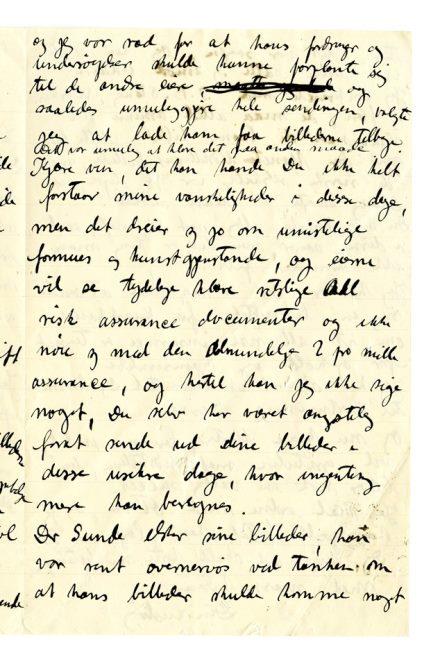 og jeg var ræd for at hans fordringer og
undersøgelser skulde kunne forplante sig
til de andre eiere og
saaledes umuliggjøre hele sendingen, valgte
jeg at lade ham faa billederne tilbage.
Det var umulig at klare det paa anden maade
Kjære ven, det kan hænde Du ikke helt
forstaar mine vanskeligheder i disse dage,
men det dreier sig jo om umistelige
formues og kunstgjenstande, og eierne
vil se tydelige klare retslige All
risk assurance documenter og ikke
nøie sig med den almindelige 2 pro mille
assurance, og hertil kan jeg ikke sige
noget, Du selv har været ængstelig
for at sende ud dine billeder i
disse usikre dage, hvor ingenting
mere kan beregnes.
Dr Sunde elsker sine billeder, han
var rent overnervøs ved tanken om
at hans billeder skulde komme noget